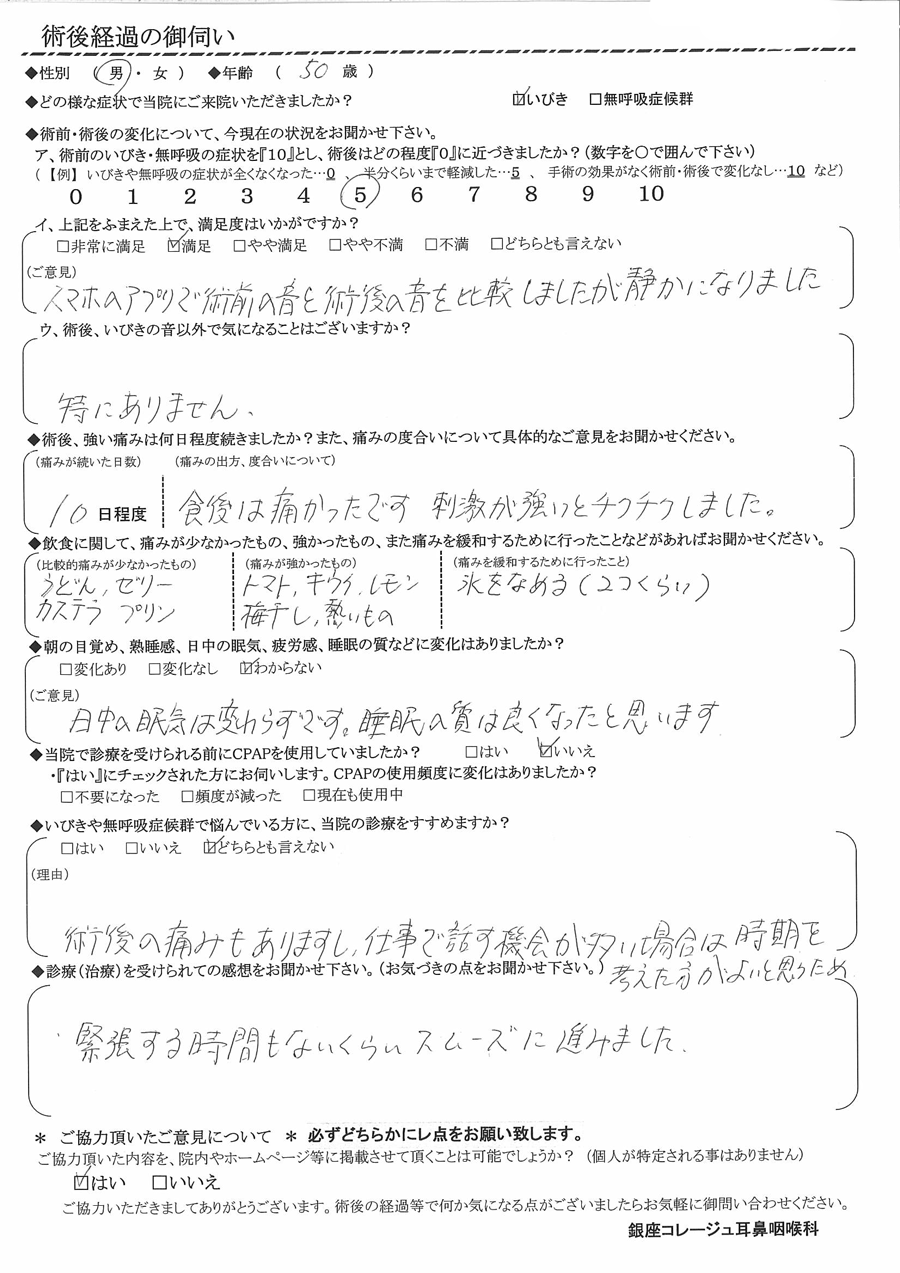 術後経過の御伺い
◆性別 （ 男 ・ 女 ） ◆年齢 （ 50 歳 ）
◆どの様な症状で当院にご来院いただきましたか？ ☑いびき □無呼吸症候群
◆術前・術後の変化について、今現在の状況をお聞かせ下さい。
ア、術前のいびき・無呼吸の症状を『10』とし、術後はどの程度『0』に近づきましたか？（数字を○で囲んで下さい）
（【例】 いびきや無呼吸の症状が全くなくなった…0 、 半分くらいまで軽減した…5 、 手術の効果がなく術前・術後で変化なし…10 など）
0 1 2 3 4 5 6 7 8 9 10
イ、上記をふまえた上で、満足度はいかがですか？
□非常に満足 ☑満足 □やや満足 □やや不満 □不満 □どちらとも言えない
（ご意見）
スマホのアプリで術前の音と術後の音を比較しましたが静かになりました
ウ、術後、いびきの音以外で気になることはございますか？
特にありません、
◆術後、強い痛みは何日程度続きましたか？また、痛みの度合いについて具体的なご意見をお聞かせください。
（痛みが続いた日数） （痛みの出方、度合いについて）
10 日程度 食後は痛かったです 刺激が強いとチクチクしました。
◆飲食に関して、痛みが少なかったもの、強かったもの、また痛みを緩和するために行ったことなどがあればお聞かせください。
（比較的痛みが少なかったもの） （痛みが強かったもの） （痛みを緩和するために行ったこと）
うどん，ゼリー トマト，キウイ，レモン 氷をなめる（2コくらい）
カステラ プリン 梅干し，熱いもの
◆朝の目覚め、熟睡感、日中の眠気、疲労感、睡眠の質などに変化はありましたか？
□変化あり □変化なし ☑わからない
（ご意見）
日中の眠気は変わらずです。睡眠の質は良くなったと思います
◆当院で診療を受けられる前にCPAPを使用していましたか？ □はい ☑いいえ
・『はい』にチェックされた方にお伺いします。CPAPの使用頻度に変化はありましたか？
□不要になった □頻度が減った □現在も使用中
◆いびきや無呼吸症候群で悩んでいる方に、当院の診療をすすめますか？
□はい □いいえ ☑どちらとも言えない
（理由）
術後の痛みもありますし，仕事で話す機会が多い場合は時期を
考えた方がよいと思うため
◆診療（治療）を受けられての感想をお聞かせ下さい。（お気づきの点をお聞かせ下さい。）
緊張する時間もないくらいスムーズに進みました．
＊ ご協力頂いたご意見について ＊ 必ずどちらかにレ点をお願い致します。
ご協力頂いた内容を、院内やホームページ等に掲載させて頂くことは可能でしょうか？（個人が特定される事はありません）
☑はい □いいえ
ご協力いただきましてありがとうございます。術後の経過等で何か気になる点がございましたらお気軽に御問い合わせください。
銀座コレージュ耳鼻咽喉科